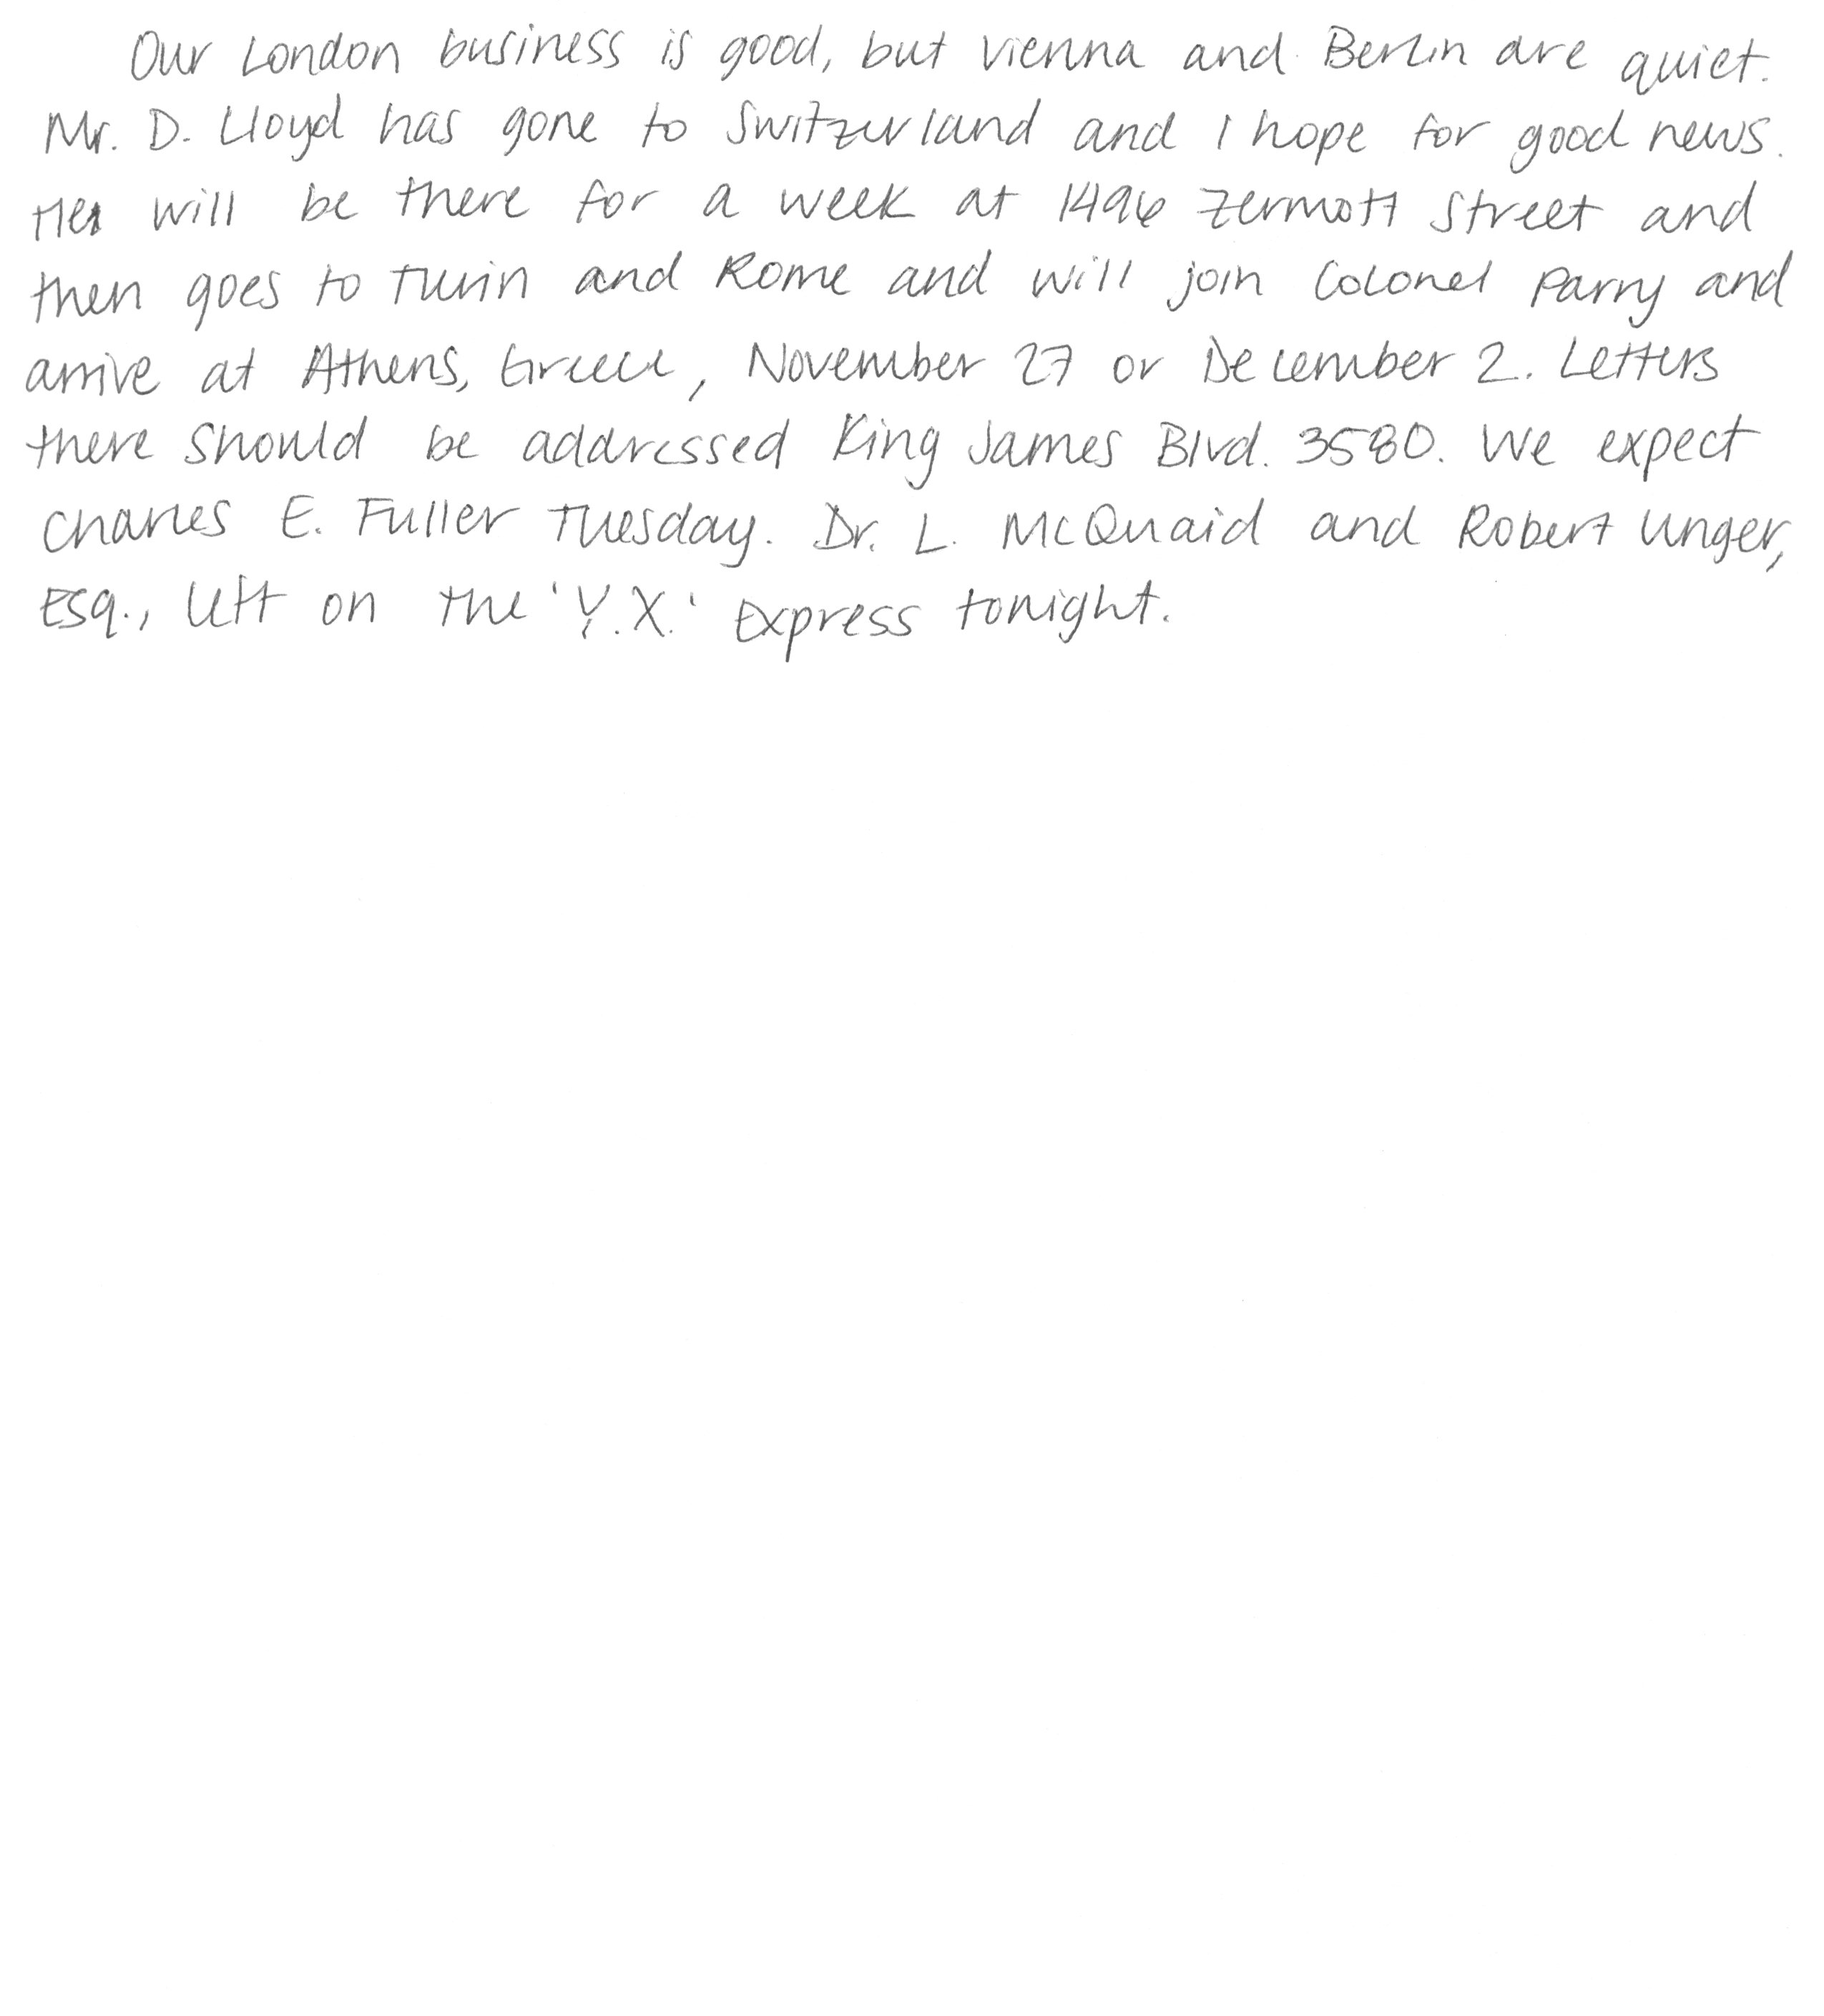 Our London business is good, but Vienna and Berlin are quiet.
Mr. D. Lloyd has gone to Switzerland and I hope for good news.
He will be there for a week at 1496 Zermott Street and
then goes to Turin and Rome and will join Colonel Parry and
arrive at Athens, Greece, November 27 or December 2. Letters
there should be addressed King James Blvd. 3580. We expect
Charles E. Fuller Tuesday. Dr. L. McQuaid and Robert Unger,
Esq., left on the 'Y.X.' Express tonight.